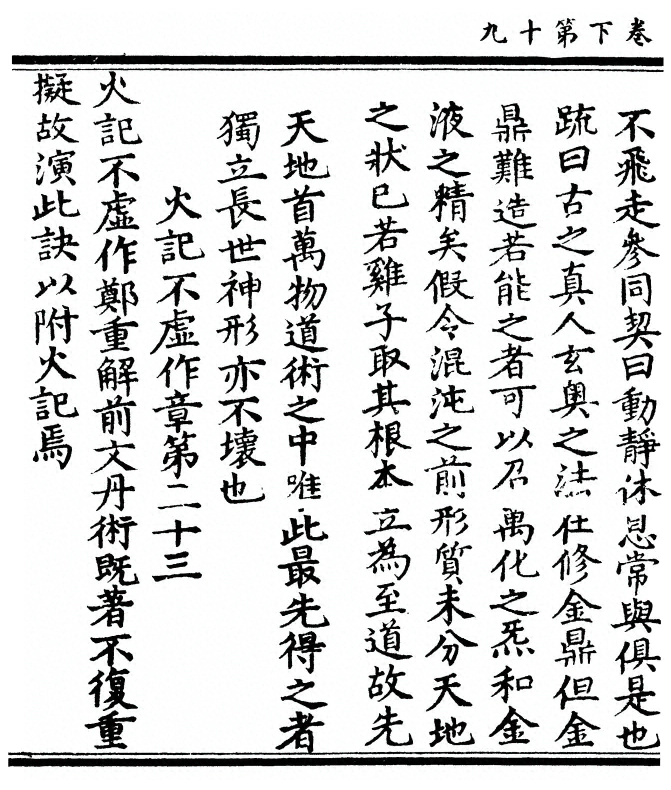 卷下第十九
不飛走參同契曰動靜休息常與俱是也
疏曰古之真人玄奧之法仕修金鼎但金
鼎難造若能之者可以召萬化之炁和金
液之精矣假令混沌之前形質未分天地
之狀巳若雞子取其根本立為至道故先
天地首萬物道術之中唯此最先得之者
獨立長世神形亦不壞也
火記不虛作章第二十三
火記不虛作鄭重解前文丹術既著不復重
擬故演此訣以附火記焉